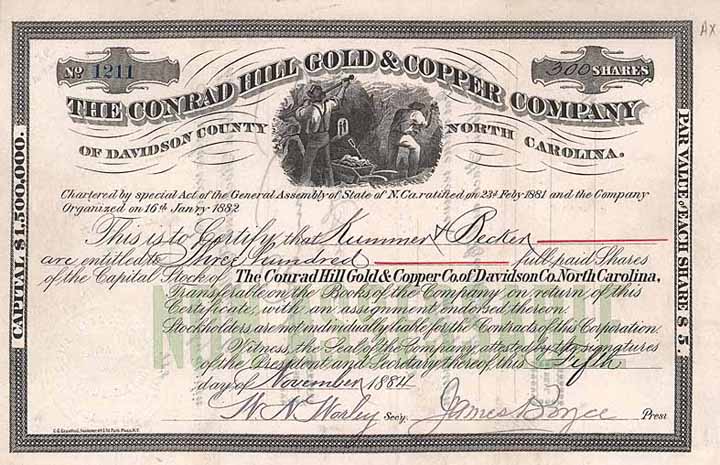 AX
No 1211
300 SHARES
THE CONRAD HILL GOLD & COPPER COMPANY
OF DAVIDSON COUNTY NORTH CAROLINA.
CAPITAL $1,500,000.
PAR VALUE of EACH SHARE $5.
Chartered by special Act of the General Assembly of State of N.Ca. ratified on 23d Feby 1881 and the Company
Organized on 16th Janry 1882
This is to Certify that Kummer & Becker
are entitled to Three hundred full paid Shares
of the Capital Stock of The Conrad Hill Gold & Copper Co. of Davidson Co. North Carolina,
Transferable on the Books of the Company on return of this
Certificate, with an assignment endorsed thereon.
Stockholders are not individually liable for the Contracts of this Corporation.
Witness, the Seal of the Company, attested by the signatures
of the President and Secretary thereof this Fifth
day of November 1884
W. N. Worley Secy. James Boyce Prest